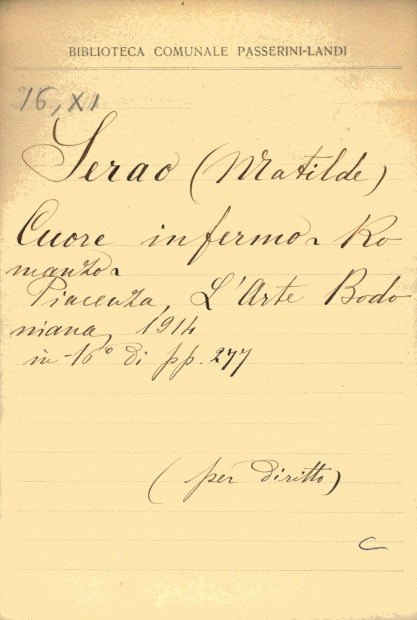 BIBLIOTECA COMUNALE PASSERINI-LANDI
76, XI
Serao (Matilde)
Cuore infermo. Ro-
manzo.
Piacenza, L'Arte Bodo
niana, 1914
in-16° di pp. 277
(per diritto)
C